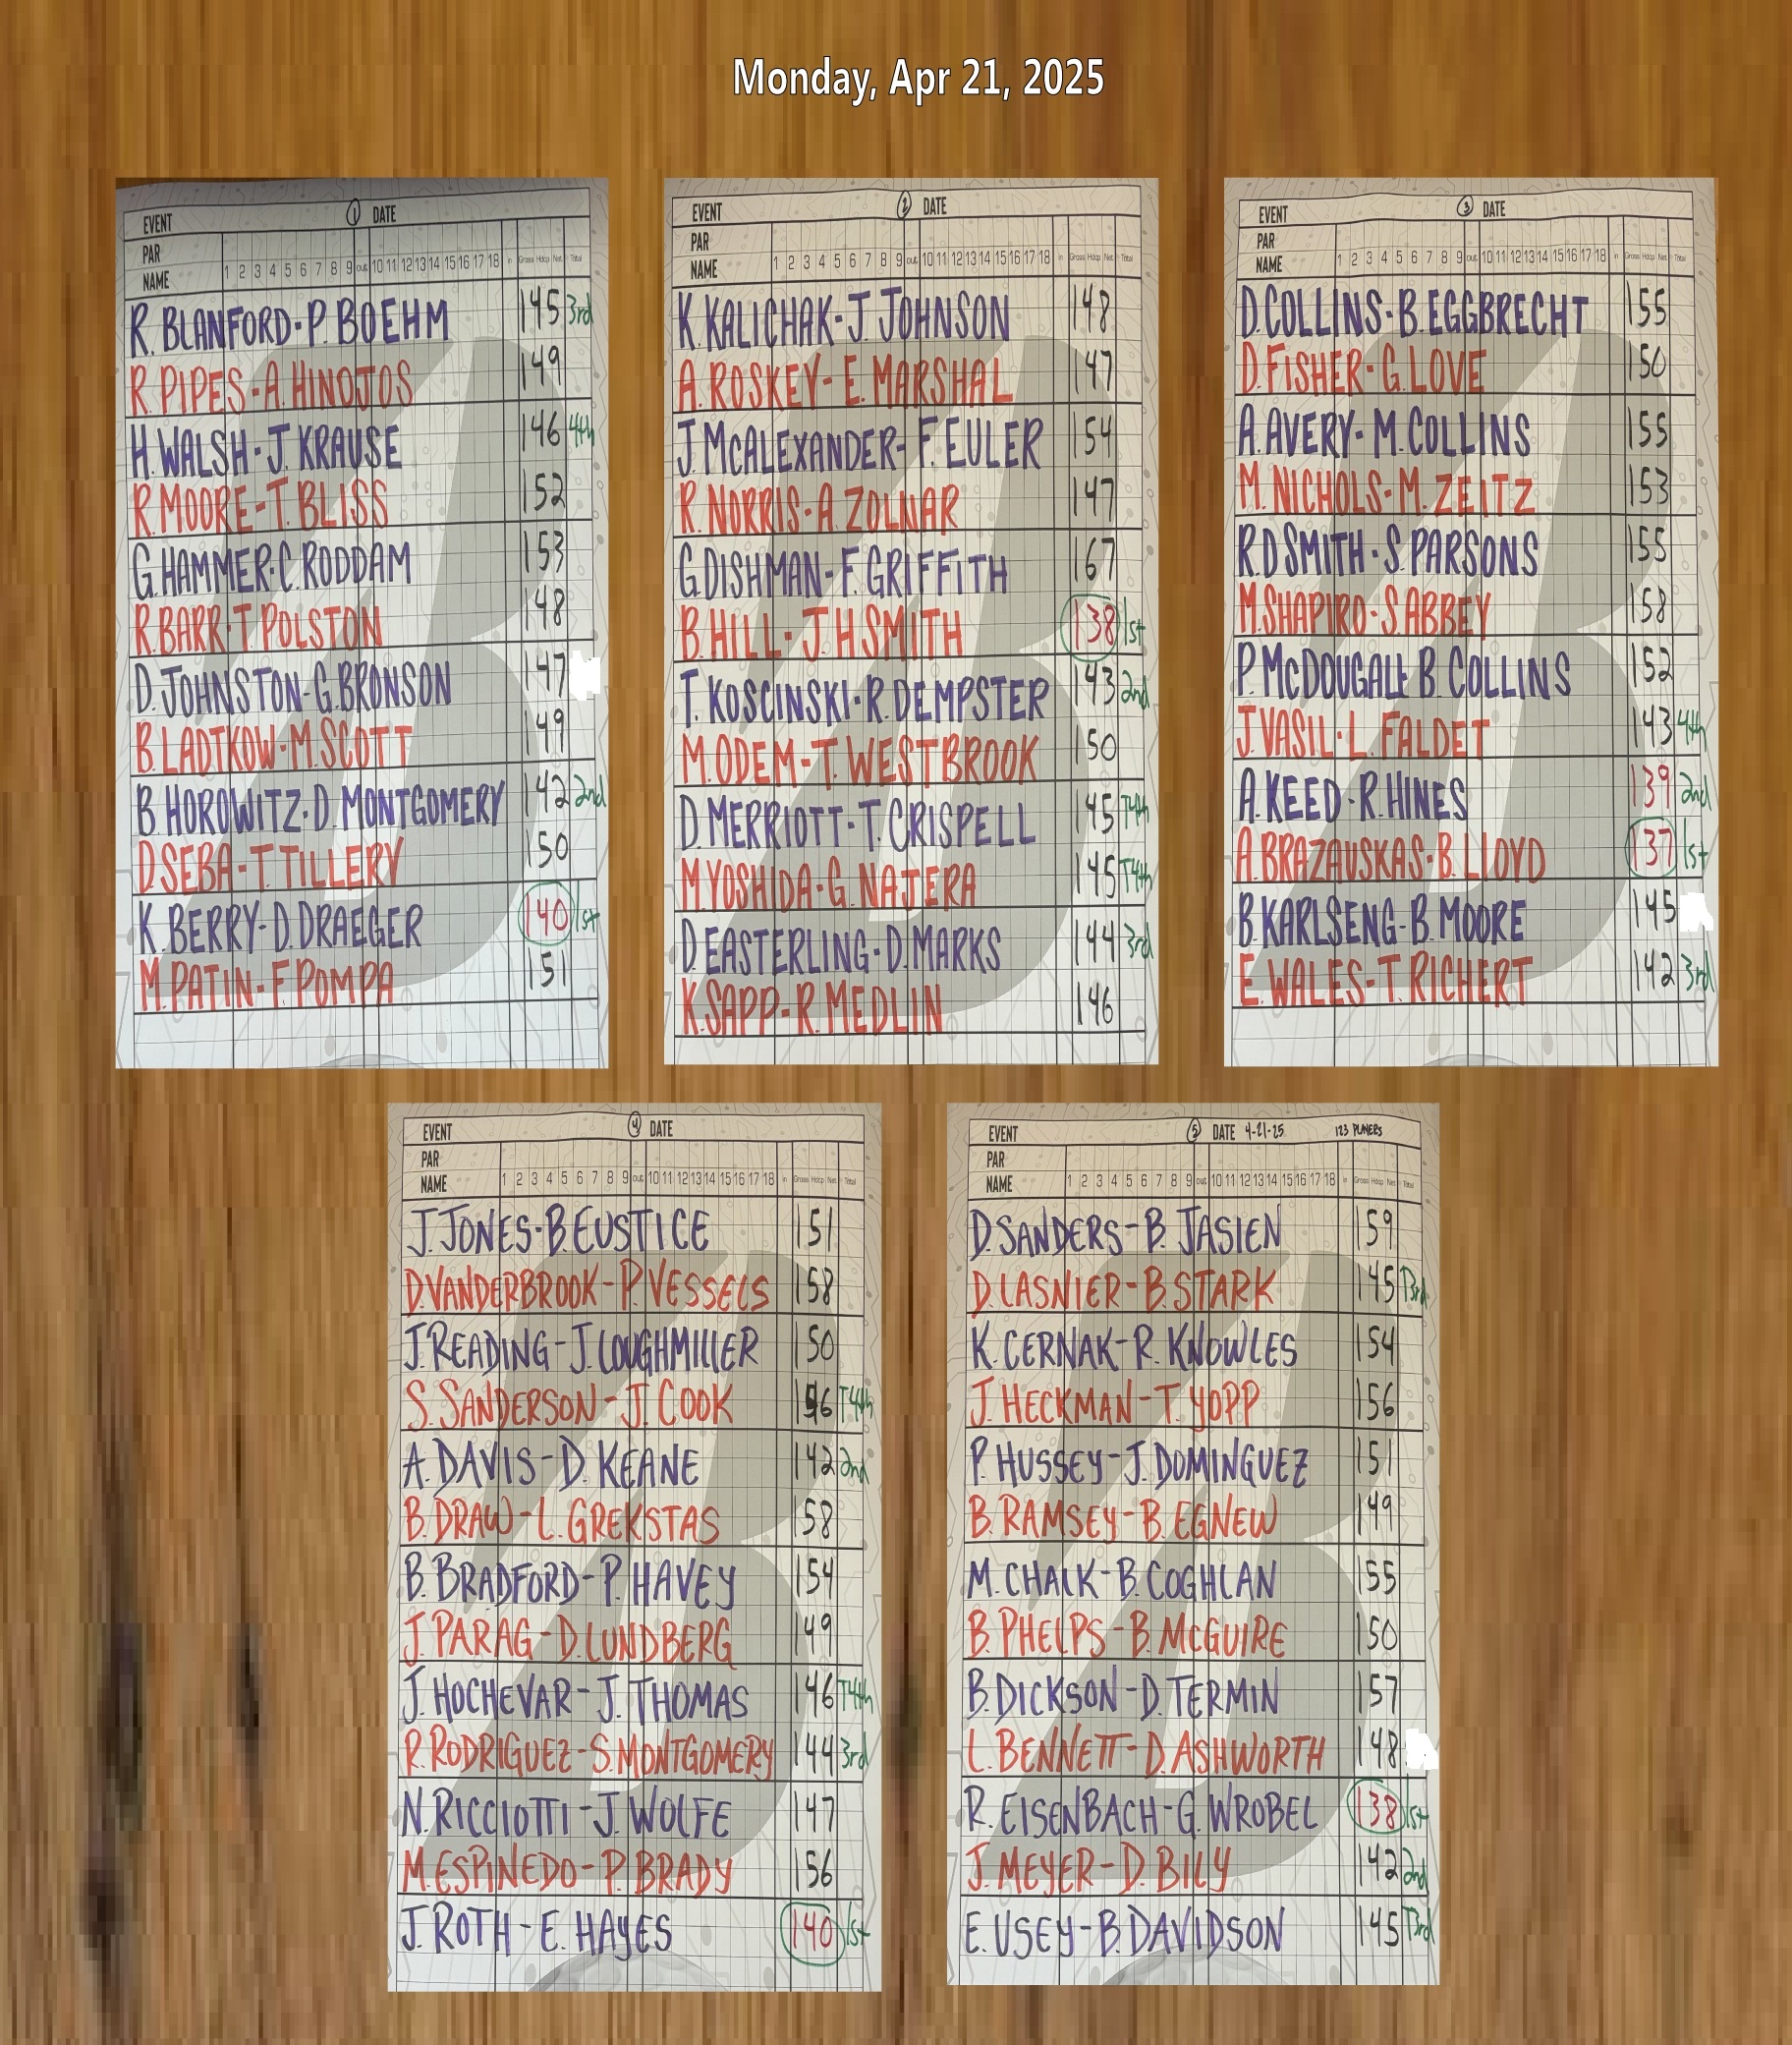 Monday, Apr 21, 2025
EVENT 1 DATE
PAR
NAME 1 2 3 4 5 6 7 8 9 out 10 11 12 13 14 15 16 17 18 in Gross Hdcp Net Total
R. BLANFORD - P. BOEHM 145 3rd
R. PIPES - A. HINOJOS 149
H. WALSH - J. KRAUSE 146 4th
R. MOORE - T. BLISS 152
G. HAMMER - C. RODDAM 153
R. BARR - T. POLSTON 148
D. JOHNSTON - G. BRONSON 147
B. LADTKOW - M. SCOTT 149
B. HOROWITZ - D. MONTGOMERY 142 2nd
D. SEBA - T. TILLERY 150
K. BERRY - D. DRAEGER 140 1st
M. PATIN - F. POMPA 151
EVENT 2 DATE
PAR
NAME 1 2 3 4 5 6 7 8 9 out 10 11 12 13 14 15 16 17 18 in Gross Hdcp Net Total
K. KALICHAK - J. JOHNSON 148
A. ROSKEY - E. MARSHAL 147
J. McALEXANDER - F. EULER 154
R. NORRIS - A. ZOLNAR 147
G. DISHMAN - F. GRIFFITH 167
B. HILL - J. H SMITH 138 1st
T. KOSCINSKI - R. DEMPSTER 143 2nd
M. ODEM - T. WESTBROOK 150
D. MERRIOTT - T. CRISPELL 145 T4th
M. YOSHIDA - G. NAJERA 145 T4th
D. EASTERLING - D. MARKS 144 3rd
K. SAPP - R. MEDLIN 146
EVENT 3 DATE
PAR
NAME 1 2 3 4 5 6 7 8 9 out 10 11 12 13 14 15 16 17 18 in Gross Hdcp Net Total
D. COLLINS - B. EGGBRECHT 155
D. FISHER - G. LOVE 150
A. AVERY - M. COLLINS 155
M. NICHOLS - M. ZEITZ 153
R.D SMITH - S. PARSONS 155
M. SHAPIRO - S. ABBEY 158
P. McDOUGALL B. COLLINS 152
J. VASIL - L. FALDET 143 4th
A. KEED - R. HINES 139 2nd
A. BRAZAUSKAS - B. LLOYD 137 1st
B. KARLSENG - B. MOORE 145
E. WALES - T. RICHERT 142 3rd
EVENT 4 DATE
PAR
NAME 1 2 3 4 5 6 7 8 9 out 10 11 12 13 14 15 16 17 18 in Gross Hdcp Net Total
J. JONES - B. EUSTICE 151
D. VANDERBROOK - P. VESSELS 158
J. READING - J. LOUGHMILLER 150
S. SANDERSON - J. COOK 146 T4th
A. DAVIS - D. KEANE 142 2nd
B. DRAW - L. GREKSTAS 158
B. BRADFORD - P. HAVEY 154
J. PARAG - D. LUNDBERG 149
J. HOCHEVAR - J. THOMAS 146 T4th
R. RODRIGUEZ - S. MONTGOMERY 144 3rd
N. RICCIOTTI - J. WOLFE 147
M. ESPINEDO - P. BRADY 156
J. ROTH - E. HAYES 140 1st
EVENT 5 DATE 4-21-25 123 PLAYERS
PAR
NAME 1 2 3 4 5 6 7 8 9 out 10 11 12 13 14 15 16 17 18 in Gross Hdcp Net Total
D. SANDERS - B. JASIEN 159
D. LASNIER - B. STARK 145 T3rd
K. CERNAK - R. KNOWLES 154
J. HECKMAN - T. YOPP 156
P. HUSSEY - J. DOMINGUEZ 151
B. RAMSEY - B. EGNEW 149
M. CHALK - B. COGHLAN 155
B. PHELPS - B. McGUIRE 150
B. DICKSON - D. TERMIN 157
L. BENNETT - D. ASHWORTH 148
R. EISENBACH - G. WROBEL 138 1st
J. MEYER - D. BILY 142 2nd
E. USEY - B. DAVIDSON 145 T3rd